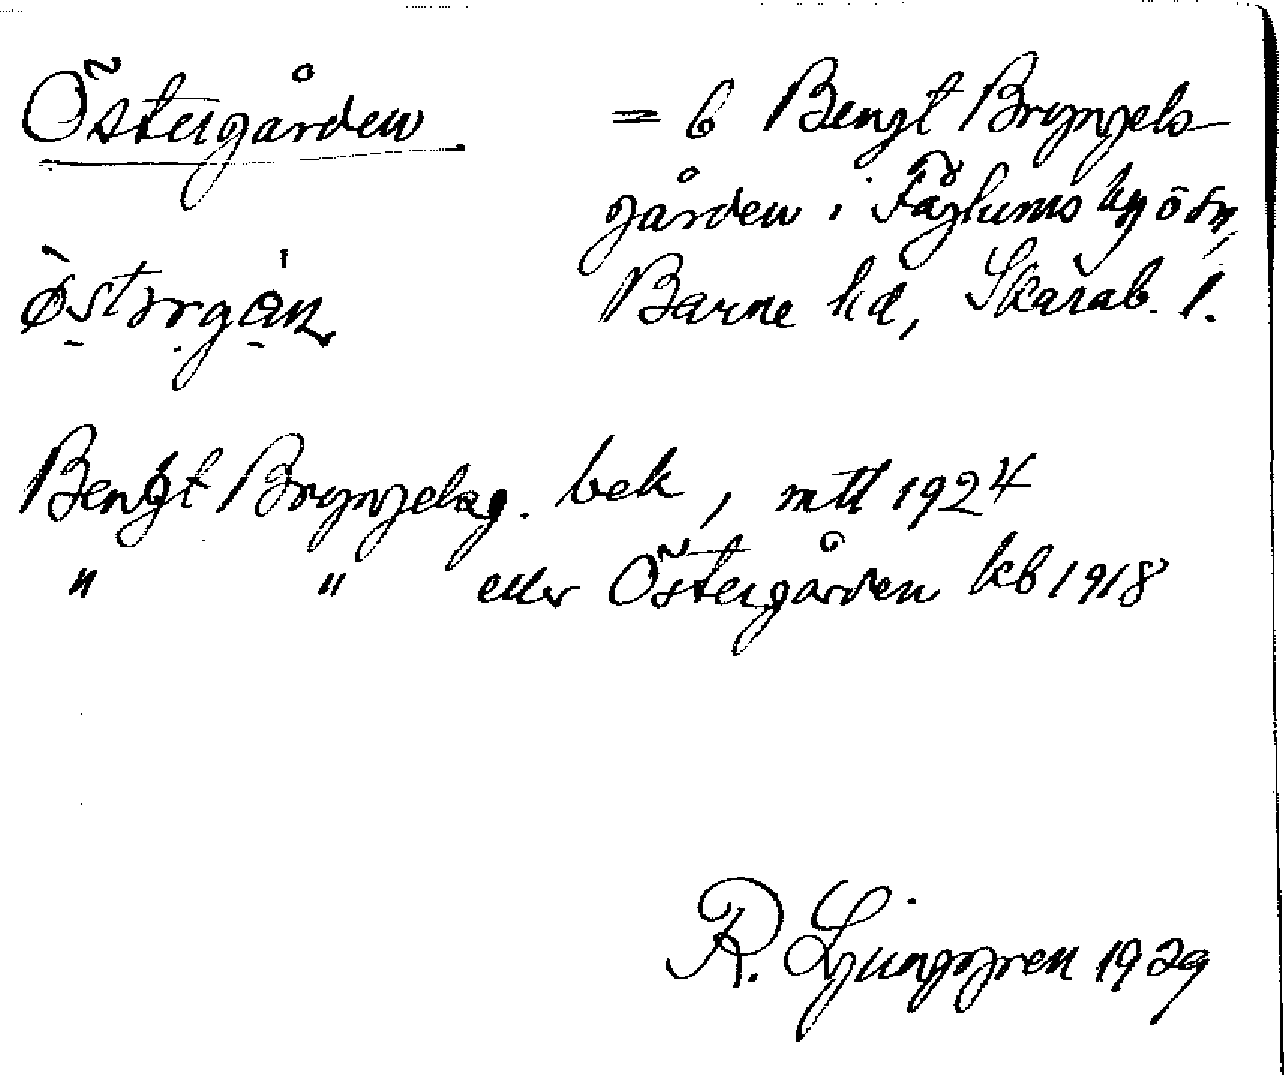 Östergården = 6 Bengt Bryngels-
gården i Fåglums by o sn,
Barne hd, Skarab. l.
Bengt Bryngelsg. bek, mtl 1924
" " eller Östergården kb 1918
R. Ljunggren 1929